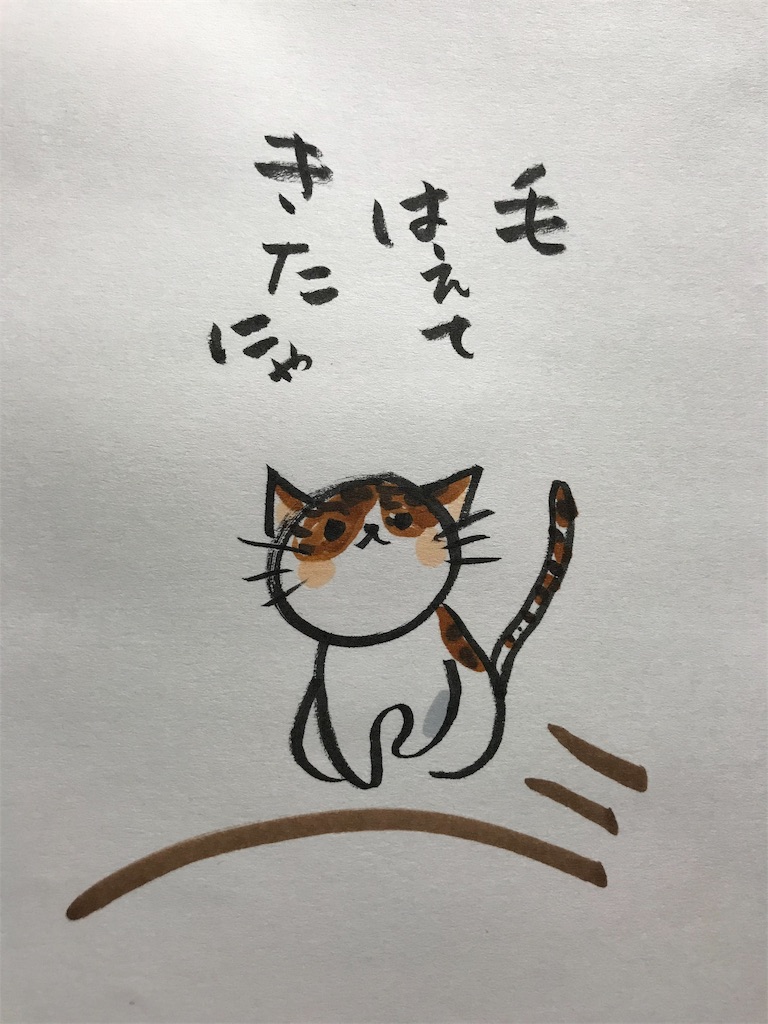 毛
はえて
きたにゃ